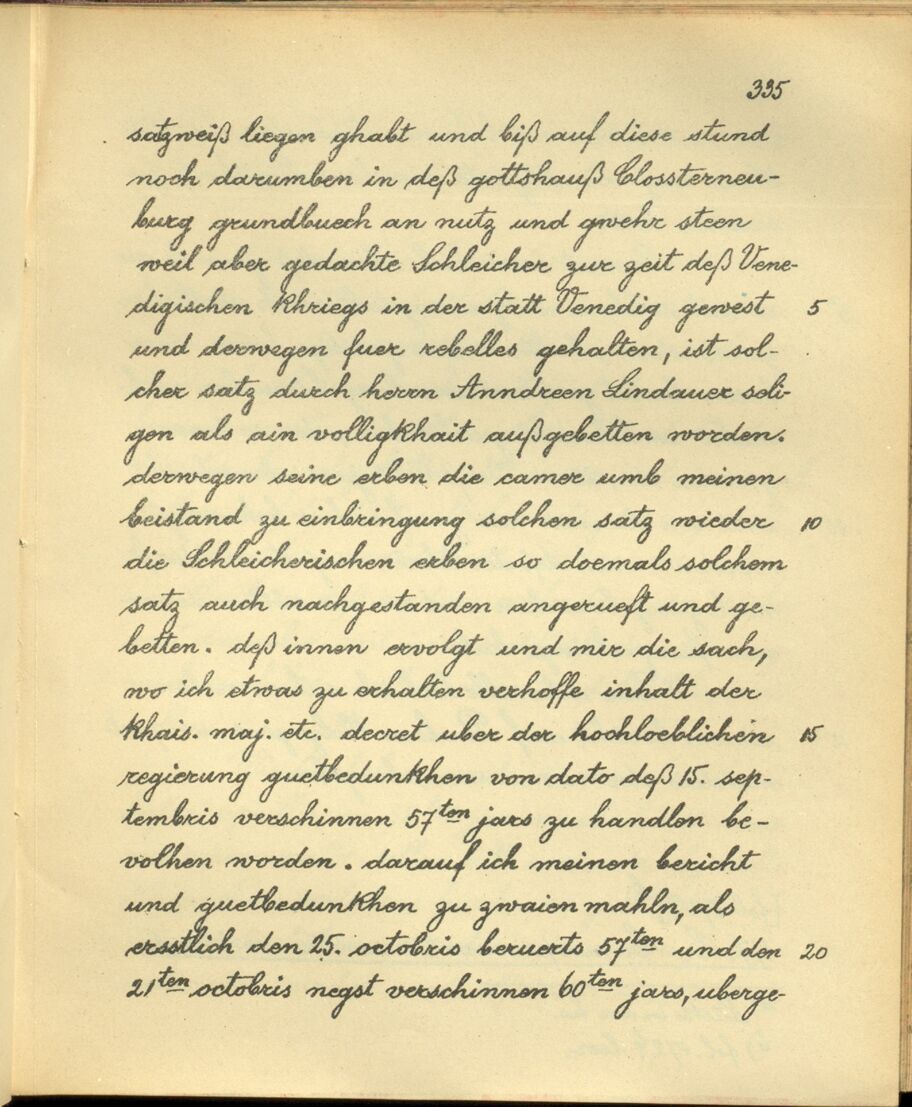 335
satzweiß liegen ghabt und biß auf diese stund
noch darumben in deß gottshauß Clossterneu-
burg grundbuech an nutz und gwehr steen
weil aber gedachte Schleicher zur zeit deß Vene-
digischen khriegs in der statt Venedig gewest 5
und derwegen fuer rebelles gehalten, ist sol-
cher satz durch herrn Anndreen Lindauer seli-
gen als ain volligkhait außgebetten worden.
derwegen seine erben die camer umb meinen
beistand zu einbringung solchen satz wieder 10
die Schleicherischen erben so doemals solchem
satz auch nachgestanden angerueft und ge-
betten. deß innen ervolgt und mir die sach,
wo ich etwas zu erhalten verhoffe inhalt der
khais. maj. etc. decret uber der hochloeblichen 15
regierung guetbedunkhen von dato deß 15. sep-
tembris verschinnen 57ten jars zu handlen be-
volhen worden. darauf ich meinen bericht
und guetbedunkhen zu zwaien mahln, als
ersstlich den 25. octobris beruerts 57ten und den 20
21ten octobris negst verschinnen 60ten jars, uberge-